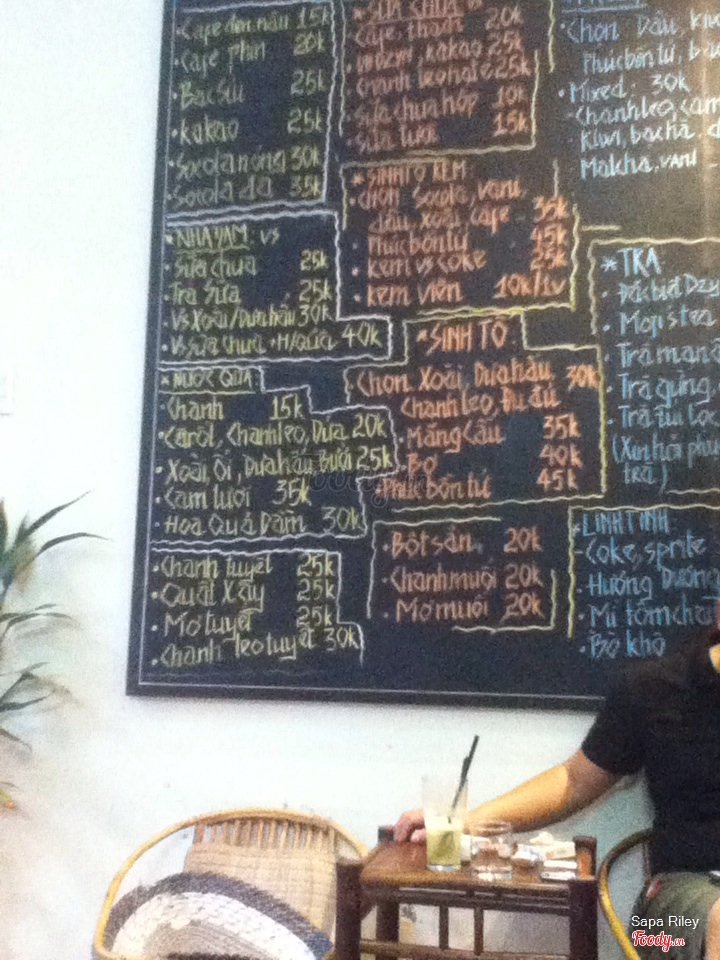 Cafe đen, nâu 15k
Cafe phin 20k
Bạc sỉu 25k
kakao 25k
Socola nóng 30k
Socola đá 35k
* NHA ĐAM: vs
Sữa chua 25k
Trà Sữa 25k
Vs Xoài/Dưa hấu 30k
Vs sữa chua + H/quả 40k
* NƯỚC QUẢ
Chanh 15k
Carot, Chanh leo, Dứa 20k
Xoài, ổi, Dưa hấu, Bưởi 25k
Cam tươi 35k
Hoa Quả Dầm 30k
Chanh tuyết 25k
Quất Xây 25k
Mơ tuyết 25k
Chanh leo tuyết 30k
* SỮA CHUA vs
Cafe, thạch 20k
kakao 25k
25k
Sữa chua hộp 10k
Sữa tươi 15k
* SINH TỐ KEM
Chọn Socola, vani,
dâu, Xoài, cafe 35k
Phúc bồn tử 45k
kem vs coke 25k
kem viên 10k/1v
* SINH TỐ
Chọn Xoài, Dưa hấu 30k
Chanh leo, Đu đủ
Mãng cầu 35k
Bơ 40k
Phúc bồn tử 45k
Bột sắn 20k
Chanh muối 20k
Mơ muối 20k
Chọn Dâu, kiwi
Phúc bồn tử,
Mixed: 30k
Chanh leo, cam
Kiwi, bạc hà
Matcha, vani
* TRÀ
Đặc biệt Dzy
Mojis tea
Trà mạn
Trà gừng,
Trà túi lọc
(Xin hỏi phục
trà)
LINH TINH
Coke, sprite
Hướng Dương
Mì tôm
Bò khô
Sapa Riley
Foody.vn